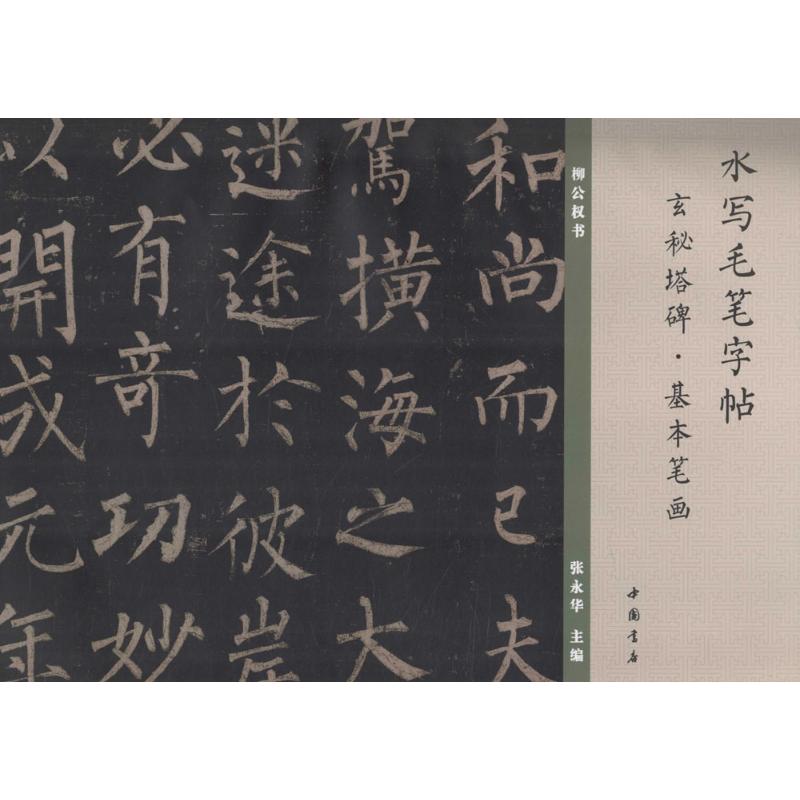 水写毛笔字帖
玄秘塔碑·基本笔画
中国书店
柳公权书
张永华 主编
和尚而已夫
驾横海之大
迷途於彼岸
必有奇功妙
以開成元年